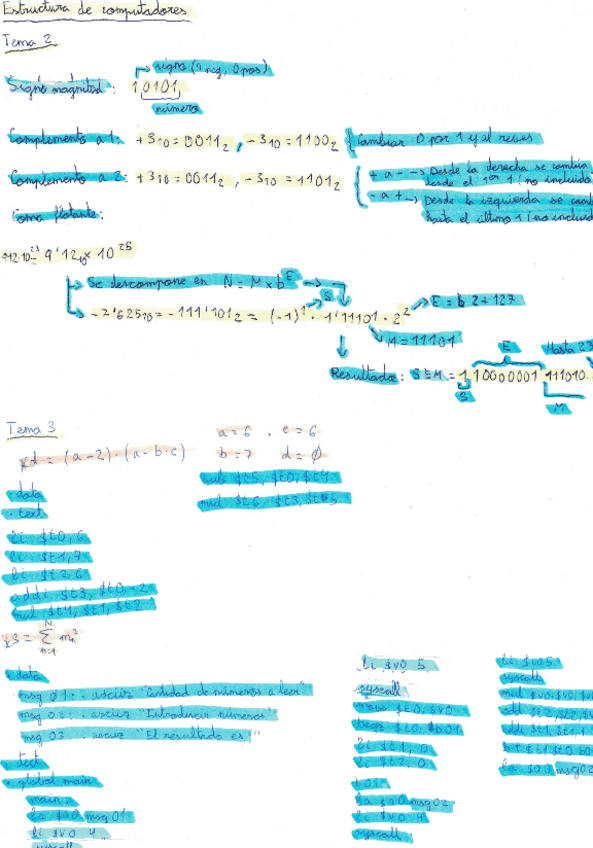 Estructura de computadores
Tema 2
signo (1 neg, 0 pos)
Signo magnitud: 10101
número
Complemento a 1: +3₁₀=0011₂, -3₁₀=1100₂ {Cambiar 0 por 1 y al revés
Complemento a 2: +3₁₀=0011₂, -3₁₀=1101₂ { + a - → Desde la derecha se cambia
desde el 1er 1 (no incluido
- a + → Desde la izquierda se cam
hasta el último 1 (no incluid
Coma flotante:
9'12₁₀ x 10²⁵
→ Se descompone en N = M x b^E
S
-7'625₁₀ = -111'101₂ = (-1)¹ · 1'11101 · 2² → E = b 2 + 127
M = 11101
E Hasta 23
Resultado: S E M = 1 10000001 111010.
S M
Tema 3
a=6, c=6
d = (a-2)·(a-b·c) b=7 d=∅
sub $t5, $t0, $t4
.data
.text
li $t0,6
li $t1,7
li $t2,6
addi $t3, $t0, -2
mul $t4, $t1, $t2
.data
msg 01: .asciiz "Cantidad de números a leer"
msg 02: .asciiz "Introducir números"
msg 03: .asciiz "El resultado es:"
.text
.global main
main:
la $a0 msg01
li $v0 4
syscall
li $v0 5
syscall
move $t0, $v0
li $t1, 0
li $t2, 0
la $a0 msg02
li $v0 4
syscall
li $v0 5
syscall
la $a0 msg02